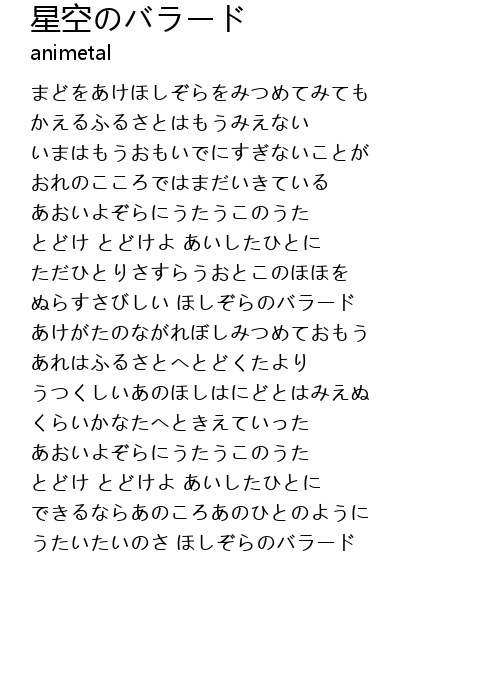 星空のバラード
animetal
まどをあけほしぞらをみつめてみても
かえるふるさとはもうみえない
いまはもうおもいでにすぎないことが
おれのこころではまだいきている
あおいよぞらにうたうこのうた
とどけ とどけよ あいしたひとに
ただひとりさすらうおとこのほほを
ぬらすさびしい ほしぞらのバラード
あけがたのながれぼしみつめておもう
あれはふるさとへとどくたより
うつくしいあのほしはにどとはみえぬ
くらいかなたへときえていった
あおいよぞらにうたうこのうた
とどけ とどけよ あいしたひとに
できるならあのころあのひとのように
うたいたいのさ ほしぞらのバラード